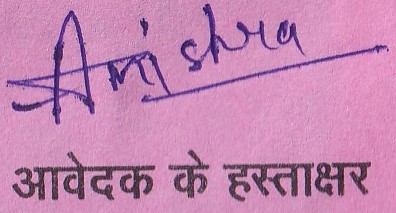 Amishra
आवेदक के हस्ताक्षर